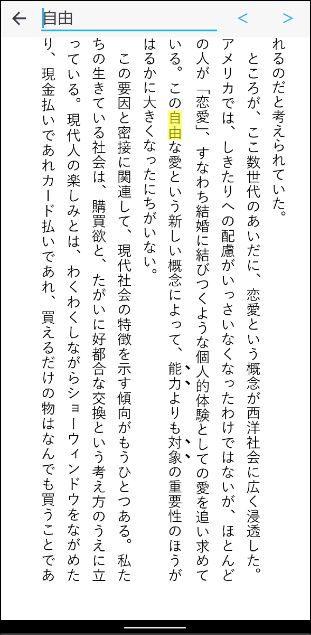 自由
れるのだと考えられていた。
　ところが、ここ数世代のあいだに、恋愛という概念が西洋社会に広く浸透した。
アメリカでは、しきたりへの配慮がいっさいなくなったわけではないが、ほとんど
の人が「恋愛」、すなわち結婚に結びつくような個人的体験としての愛を追い求めて
いる。この自由な愛という新しい概念によって、能力よりも対象の重要性のほうが
はるかに大きくなったにちがいない。
　この要因と密接に関連して、現代社会の特徴を示す傾向がもうひとつある。私た
ちの生きている社会は、購買欲と、たがいに好都合な交換という考え方のうえに立
っている。現代人の楽しみとは、わくわくしながらショーウィンドウをながめた
り、現金払いであれカード払いであれ、買えるだけの物はなんでも買うことであ